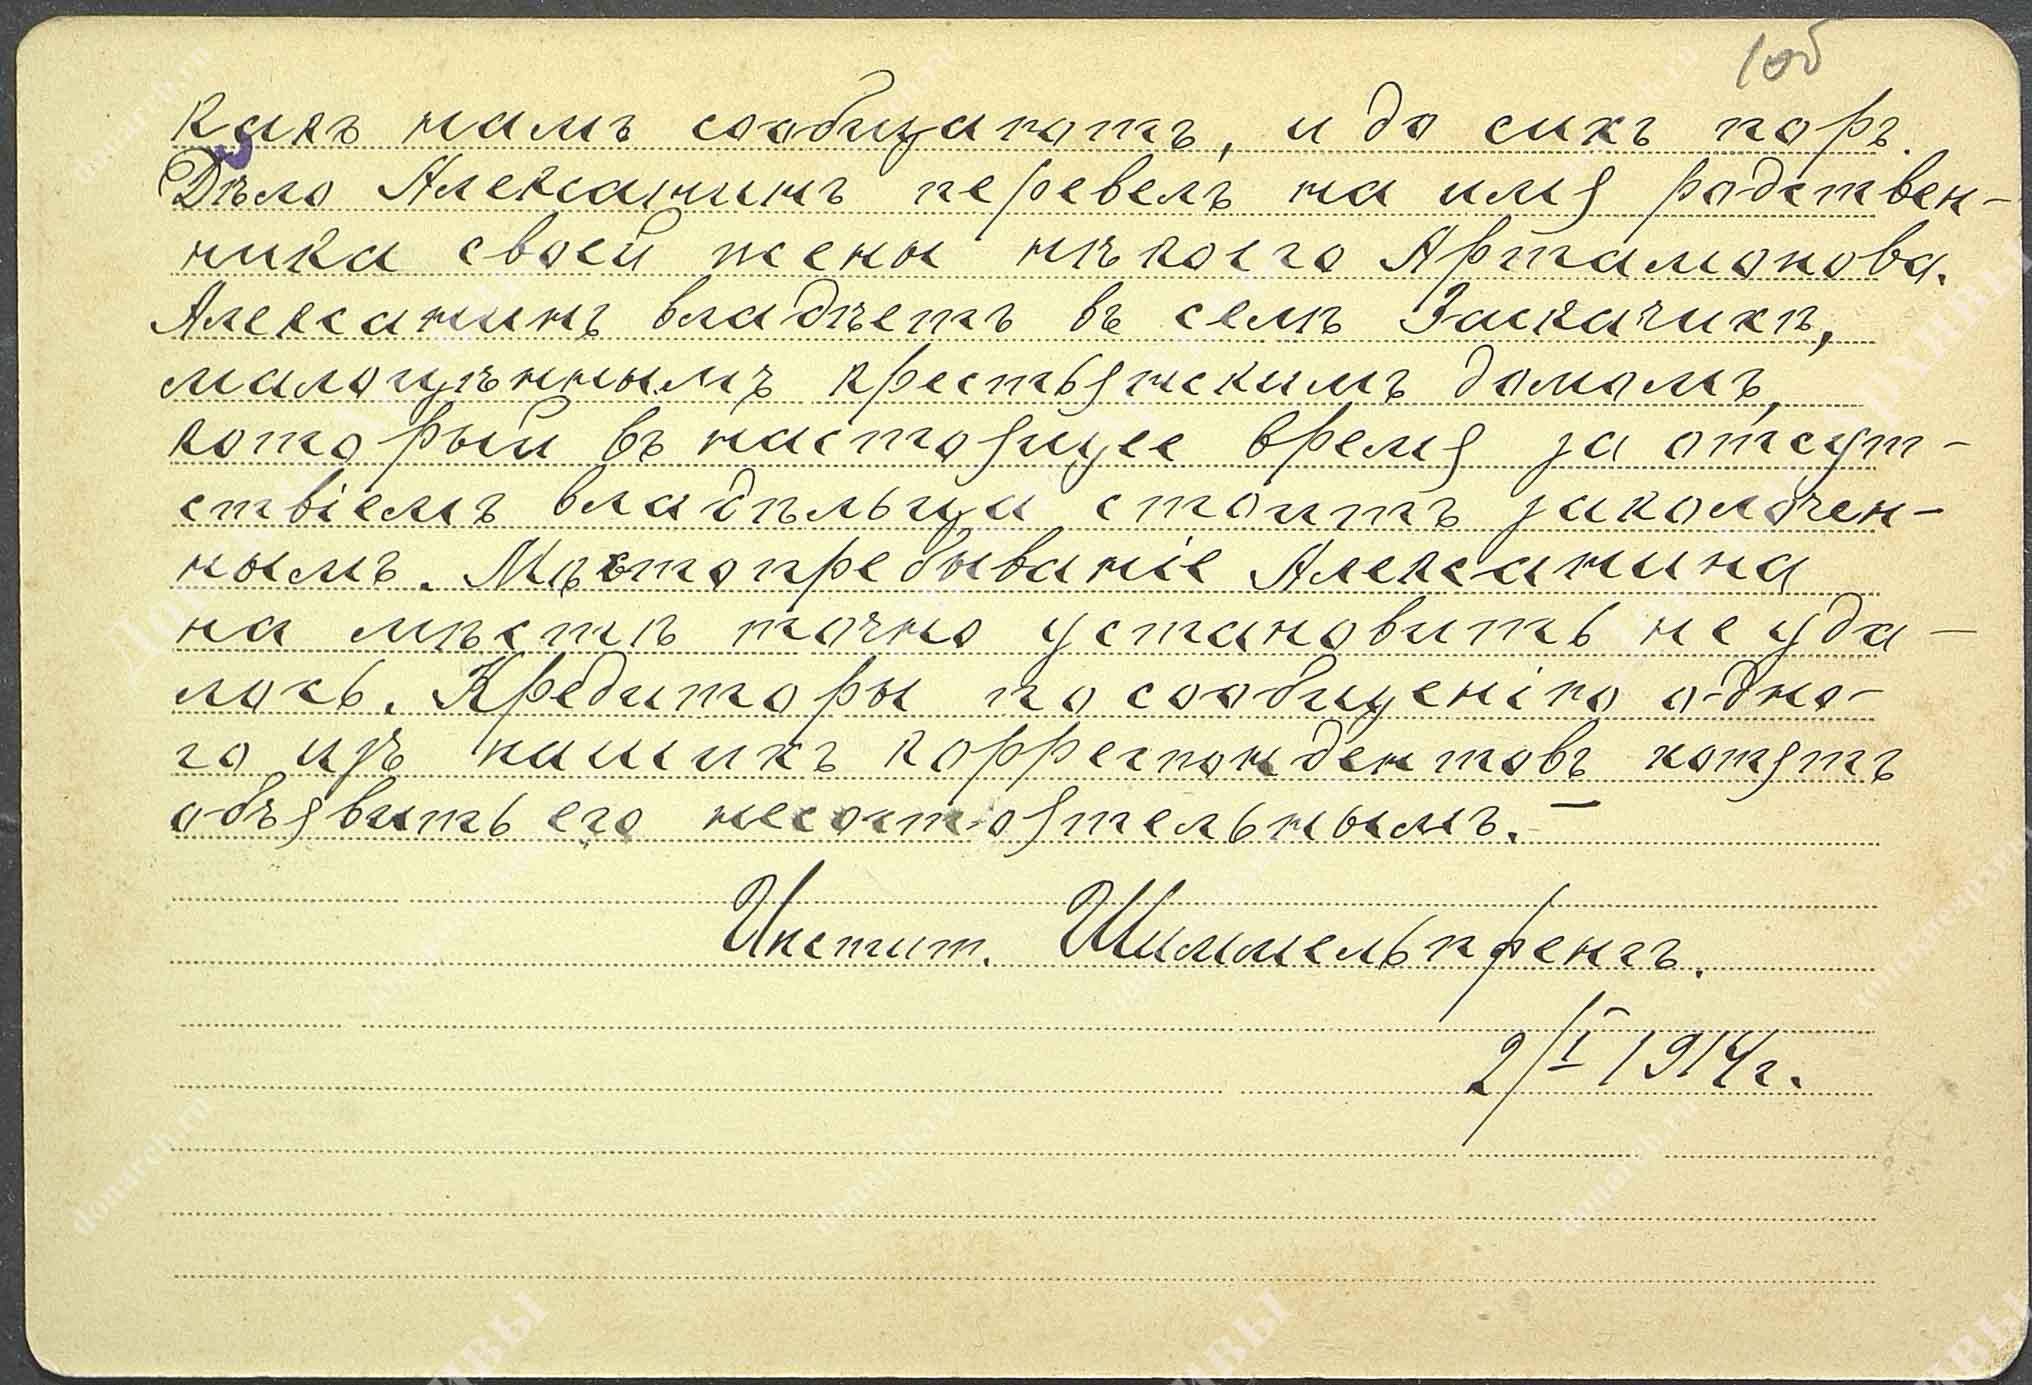 1об
какъ намъ сообщаютъ, и до сихъ поръ.
Дѣло Алексанинъ перевелъ на имя родствен-
ника своей жены нѣкоего Артамонова.
Алексанинъ владѣетъ въ селѣ Заскачихѣ,
малоцѣннымъ крестьянскимъ домомъ,
который въ настоящее время за отсут-
ствіемъ владѣльца стоитъ заколочен-
нымъ. Мѣстопребываніе Алексанина
на мѣстѣ точно установить не уда-
лось. Кредиторы по сообщенію одно-
го изъ нашихъ корреспондентовъ хотятъ
объявить его несостоятельнымъ. —
Инстит. Шиммельпфенгъ.
2/I 1914 г.